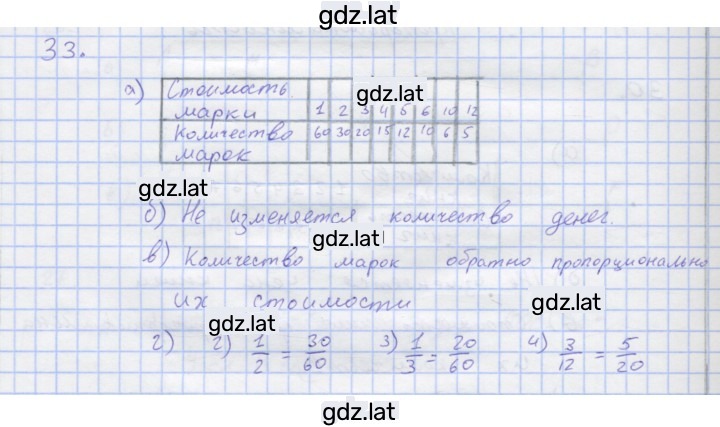 gdz.lat
33.
а) Стоимость марки 1 2 3 4 5 6 10 12
Количество марок 60 30 20 15 12 10 6 5
gdz.lat
gdz.lat
б) Не изменяется количество денег.
gdz.lat
в) Количество марок обратно пропорционально
их стоимости
gdz.lat
gdz.lat
г) 2) 1/2 = 30/60 3) 1/3 = 20/60 4) 3/12 = 5/20
gdz.lat